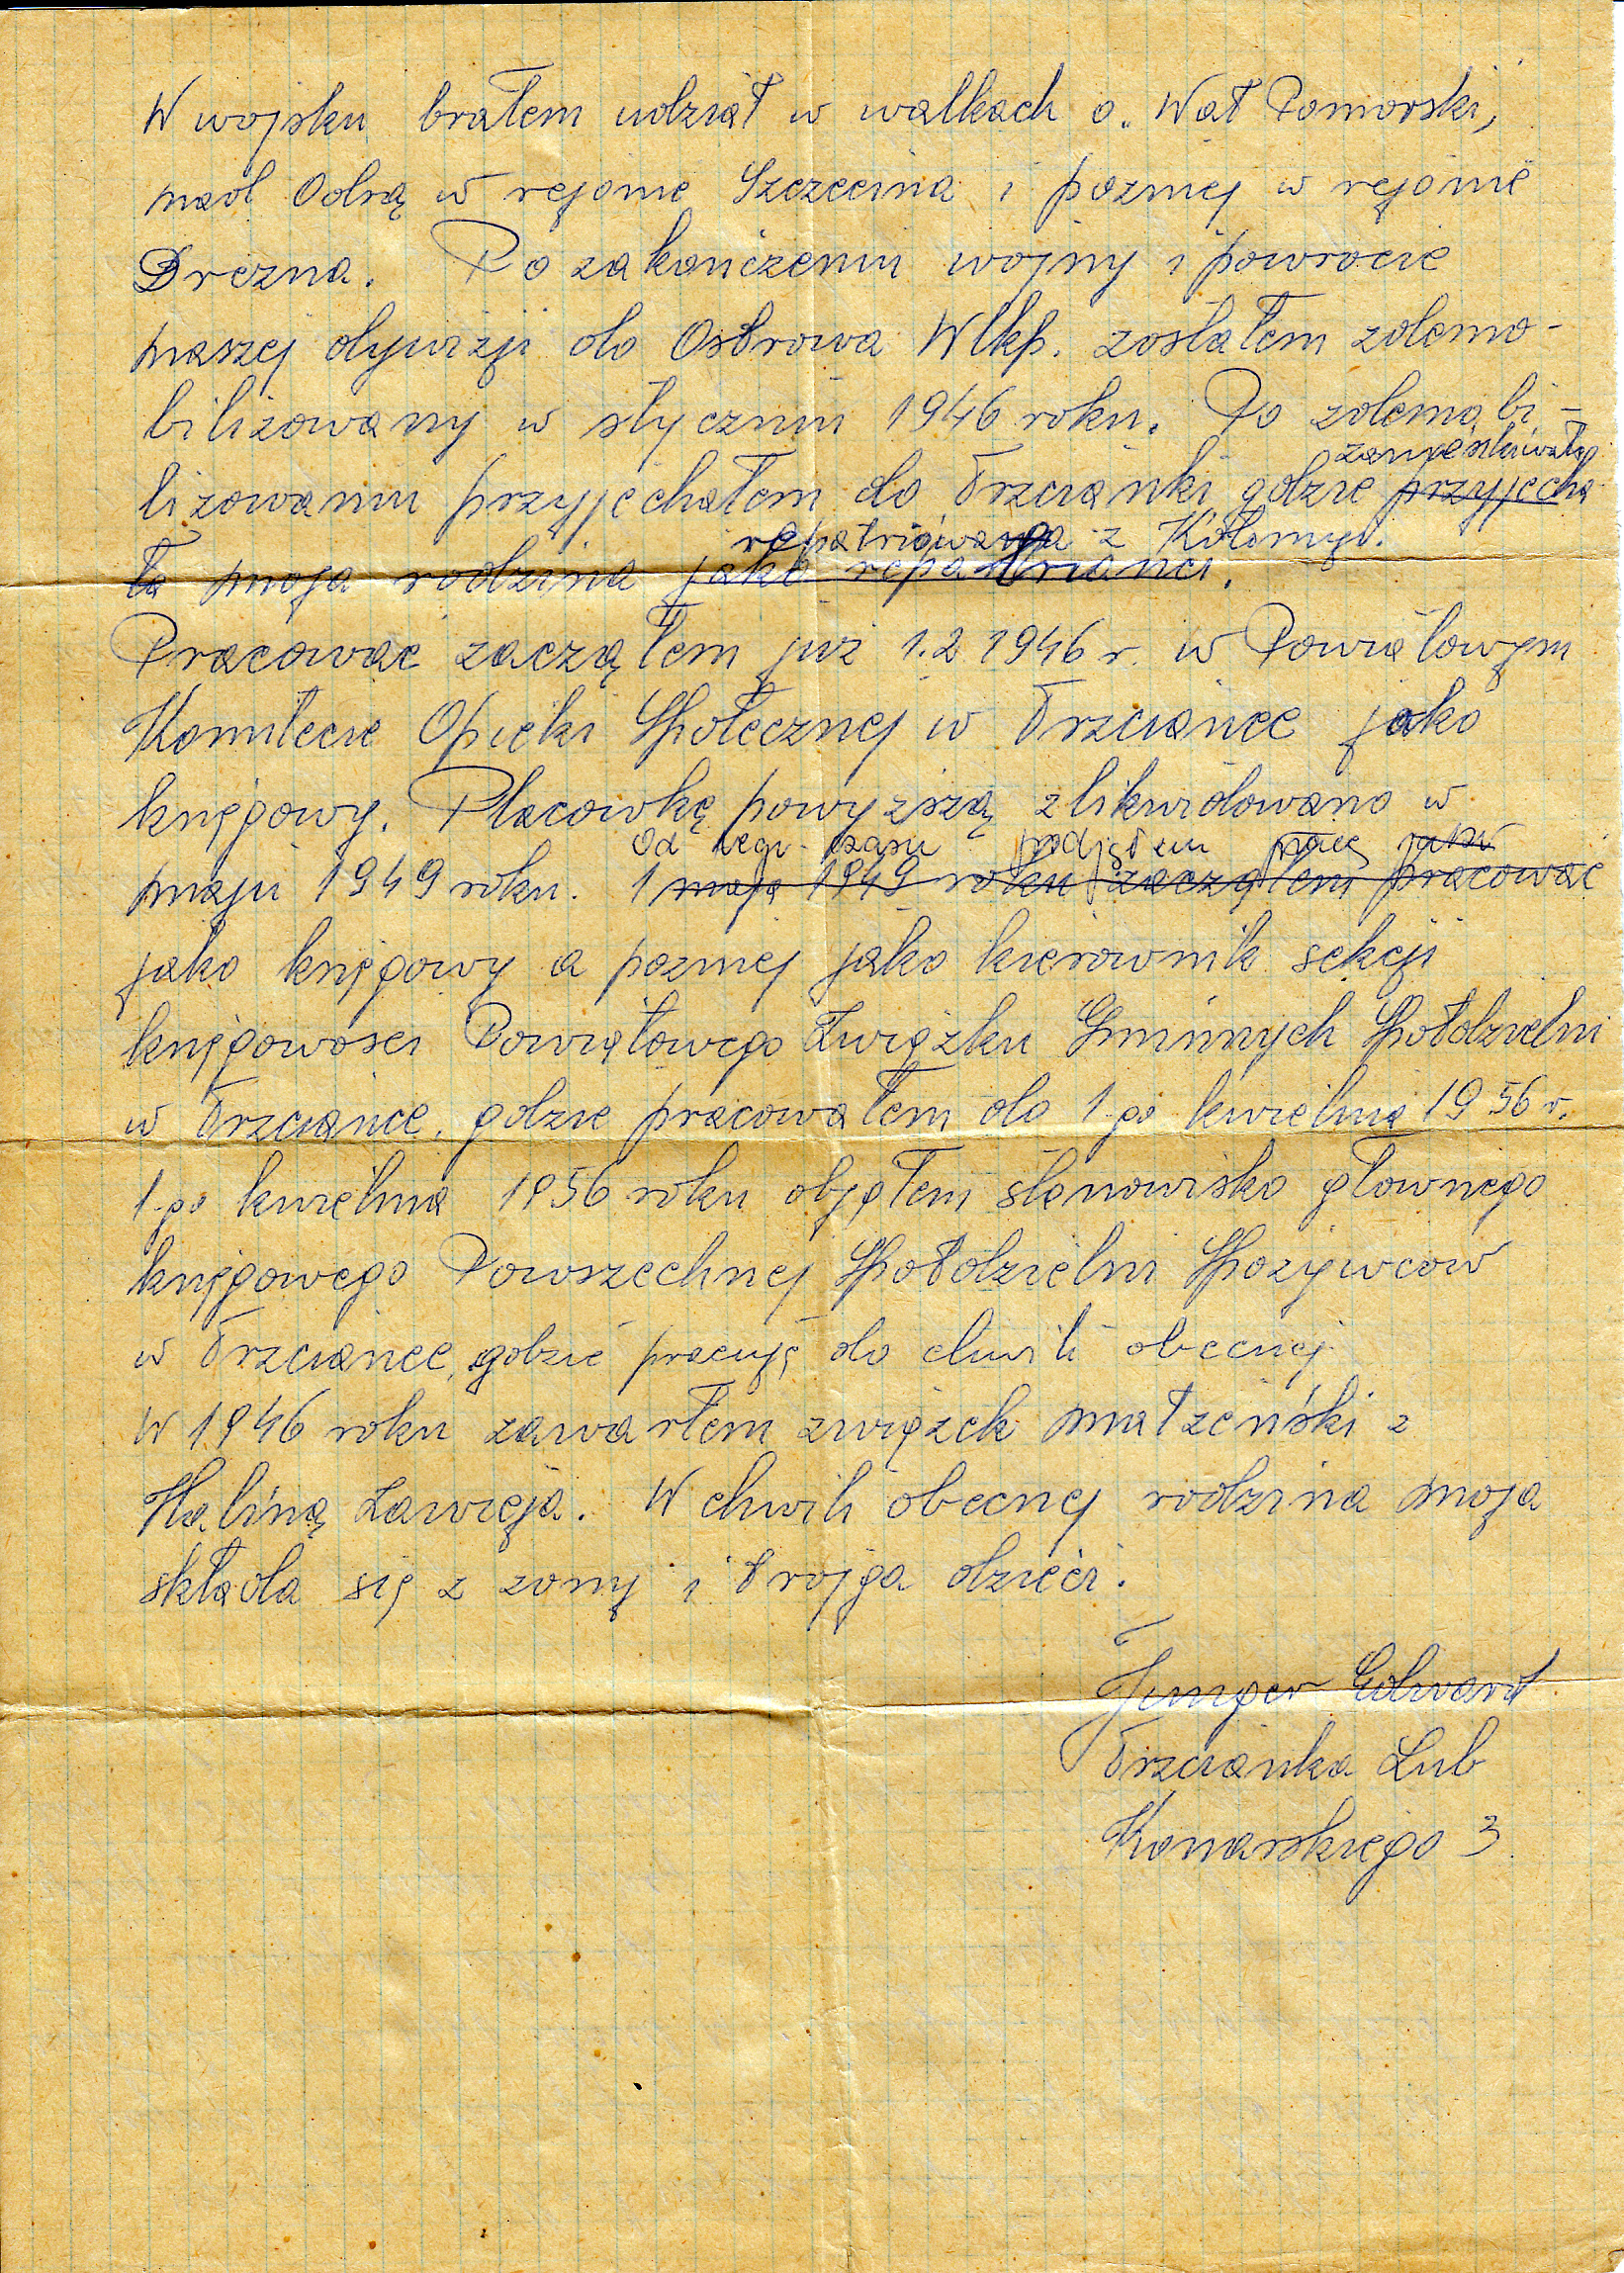 W wojsku brałem udział w walkach o Wał Pomorski,
nad Odrą w rejonie Szczecina i pozniej w rejonie
Drezna. Po zakończeniu wojny i powrocie
naszej dywizji do Ostrowa Wlkp. zostałem zdemo-
bilizowany w styczniu 1946 roku. Po zdemobi-
zamieszkiwała
lizowaniu przyjechałem do Trzcianki gdzie przyjecha
repatriowana z Kołomyi.
ła moja rodzina jako repatrianci.
Pracować zacząłem już 1.2 1946 r. w Powiatowym
Komitecie Opieki Społecznej w Trzciance jako
księgowy. Placowkę powyzszą zlikwidowano w
Od tego czasu podjąłem pracę jako
maju 1949 roku. 1 maja 1949 roku zacząłem pracować
jako księgowy a pozniej jako kierownik sekcji
księgowosci Powiatowego Związku Gminnych Społdzielni
w Trzciance, gdzie pracowałem do 1-go kwietnia 1956 r.
1-go kwietnia 1956 roku objąłem stanowisko głownego
księgowego Powszechnej Społdzielni Spozywcow
w Trzciance, gdzie pracuję do chwili obecnej.
W 1946 roku zawarłem związek małżeński z
Haliną Zawieja. W chwili obecnej rodzina moja
składa się z zony i trojga dzieci.
Edward
Trzcianka Lub
Konarskiego 3